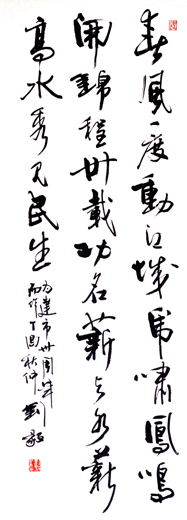 春風一度動江城虎嘯鳳鳴
開錦程卅載功名薪与水薪
高水秀見民生
为建市卅周年
而作丁酉秋仲